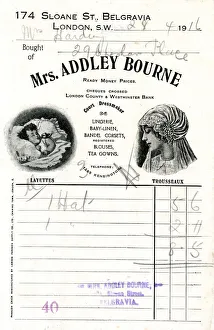 174 SLOANE ST, BELGRAVIA
LONDON, S.W. 28 4 1916
Mrs
Bought of
Mrs. ADDLEY BOURNE
READY MONEY PRICES.
CHEQUES CROSSED
LONDON COUNTY & WESTMINSTER BANK
Court Dressmaker
LINGERIE,
BABY-LINEN,
BANDEI CORSETS,
REGISTERED
BLOUSES,
TEA GOWNS.
TELEPHONE:
KENSINGTON
LAYETTES TROUSSEAUX
1 Hat 5 6
1 2 11
8 5
MRS. ADDLEY BOURNE,
Sloane Street,
BELGRAVIA.
40